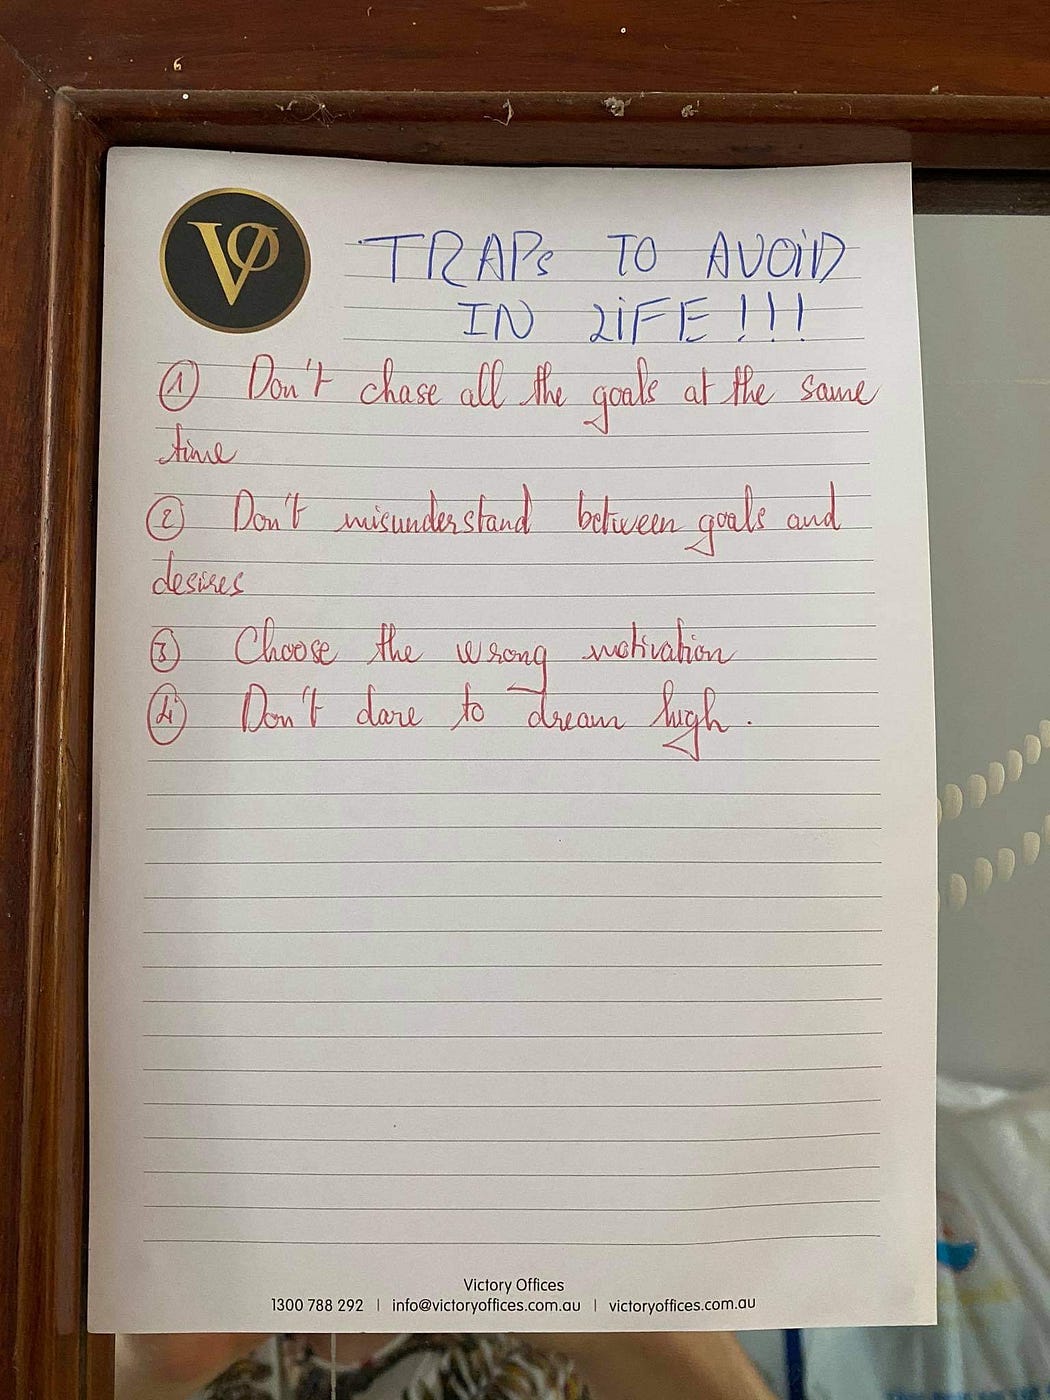 VO
TRAPs TO AVOiD
IN LiFE!!!
① Don't chase all the goals at the same
time
② Don't misunderstand between goals and
desires
③ Choose the wrong motivation
④ Don't dare to dream high.
Victory Offices
1300 788 292 | info@victoryoffices.com.au | victoryoffices.com.au